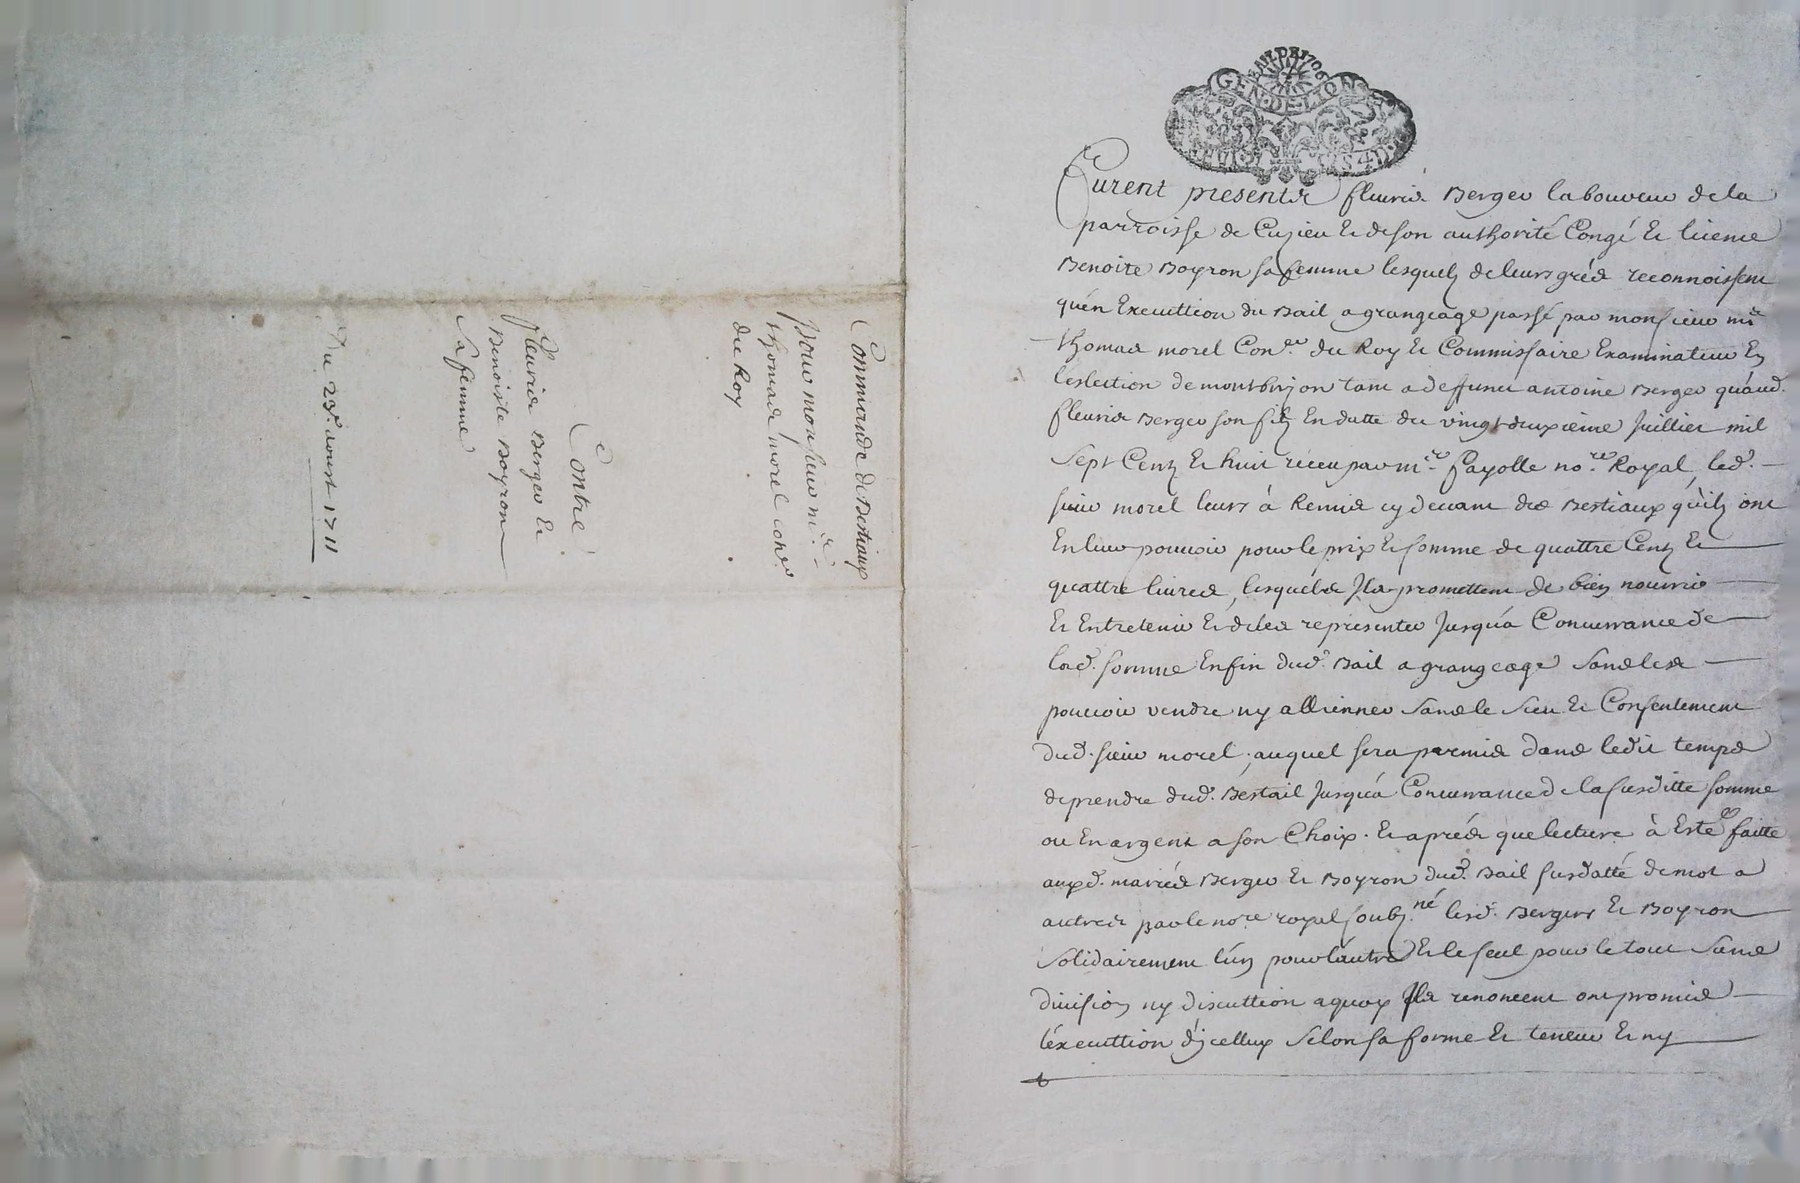 Commande de Bestiaux
pour monsieur mre
thomas morel coner
du Roy
Contre
fleurie Berger et
Benoiste Boyron
sa femme
Du 23e. aoust 1711
GEN. DE LION
Furent presents fleurie Berger laboureur de la
parroisse de Cuzieu et de son authorité Congé et licence
Benoite Boyron sa femme lesquelz de leurs grés reconnoissent
qu'en Executtion du Bail a grangeage passé par monsieur mre
thomas morel Coner. du Roy et Commissaire Examinateur En
l'eslection de montbrison tant a deffunct antoine Berger qu'aud.
fleurie Berger son filz En datte du vingt deuxieme Juillier mil
Sept Centz et huit receu par mre. fayolle nore. Royal, led.
sieur morel leurs à Remis cy devant des Bestiaux qu'ilz ont
En leur pouvoir pour le prix et somme de quattre Centz et
quattre livres, lesquels Ils promettent de bien nourrir
et Entretenir et de les representer Jusqu'á Concurrance de
lad. somme En fin dud. Bail a grangeage sans les
pouvoir vendre ny allienner sans le sceu et Consentement
dud. sieur morel, auquel sera permis dans ledit temps
de prendre dud. Béstail Jusqu'á Concurrance de la susditte somme
ou En argent a son Choix. et aprés que lecture à Esté faitte
auxd. mariés Berger et Boyron dud. Bail susdatté de mot a
autres par le nore royal soubz.né lesd. Bergers et Boyron
solidairement l'un pour l'autre et le seul pour le tout sans
division ny discuttion a quoy Ils renoncent ont promis
l'éxecuttion d'jcellux selon sa forme et teneur et ny